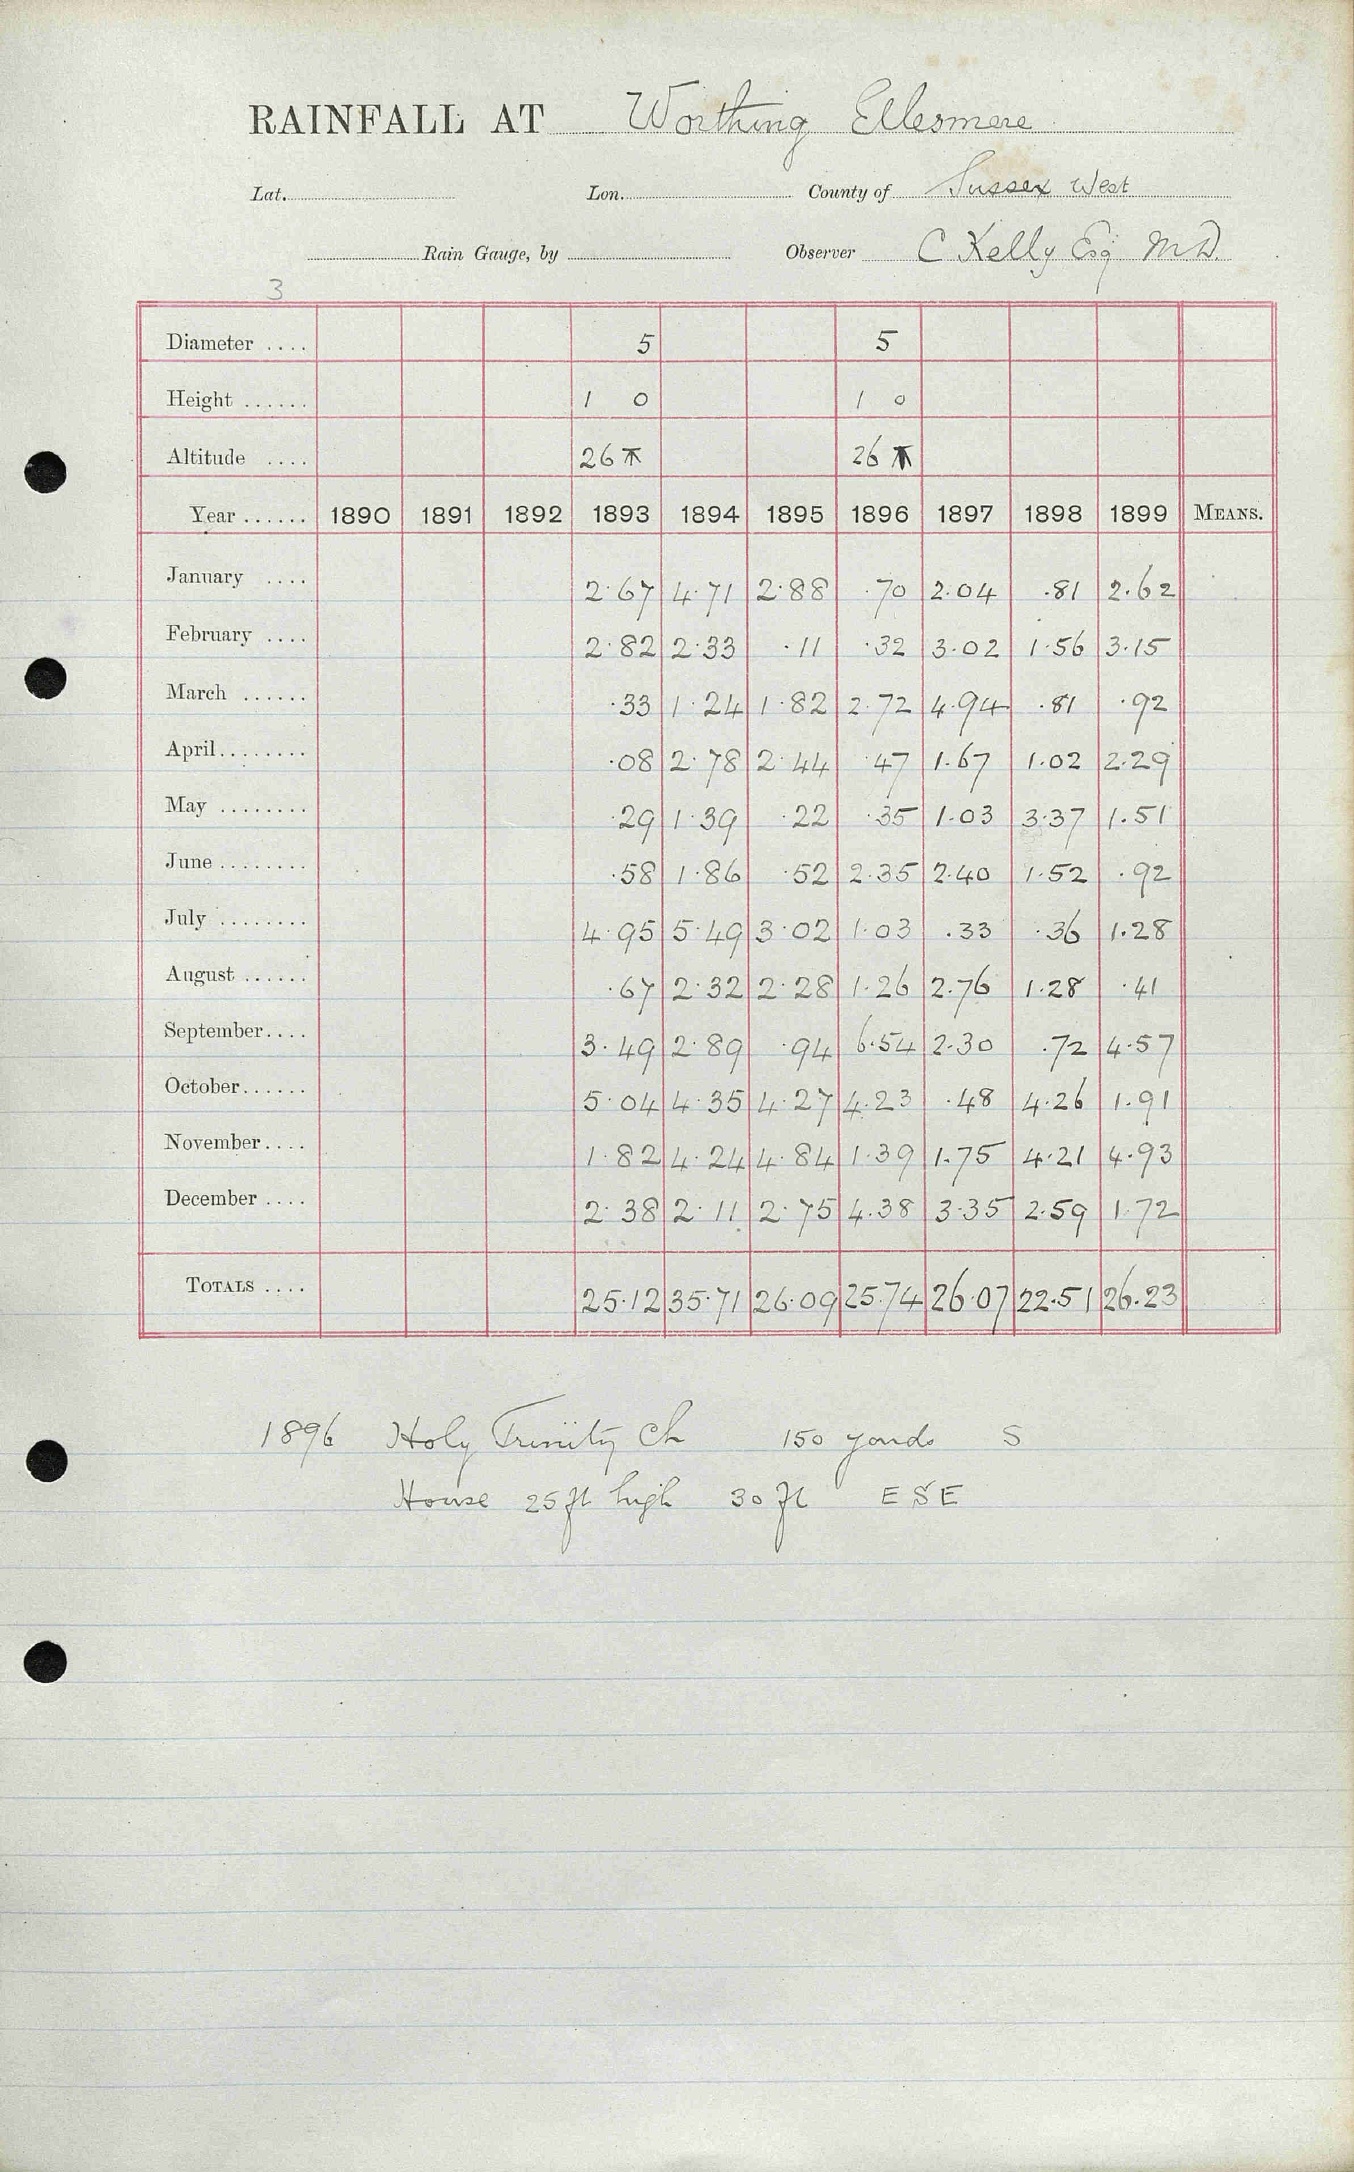 RAINFALL AT Worthing Ellesmere
Lat. Lon. County of Sussex West
Rain Gauge, by Observer C Kelly Esq M.D.
3
Diameter .... 5 5
Height ...... 1 0 1 0
Altitude .... 26 26
Year ...... 1890 1891 1892 1893 1894 1895 1896 1897 1898 1899 MEANS.
January .... 2.67 4.71 2.88 .70 2.04 .81 2.62
February .... 2.82 2.33 .11 .32 3.02 1.56 3.15
March ...... .33 1.24 1.82 2.72 4.94 .81 .92
April........ .08 2.78 2.44 .47 1.67 1.02 2.29
May ........ .29 1.39 .22 .35 1.03 3.37 1.51
June ........ .58 1.86 .52 2.35 2.40 1.52 .92
July ........ 4.95 5.49 3.02 1.03 .33 .36 1.28
August ...... .67 2.32 2.28 1.26 2.76 1.28 .41
September.... 3.49 2.89 .94 6.54 2.30 .72 4.57
October...... 5.04 4.35 4.27 4.23 .48 4.26 1.91
November.... 1.82 4.24 4.84 1.39 1.75 4.21 4.93
December .... 2.38 2.11 2.75 4.38 3.35 2.59 1.72
TOTALS .... 25.12 35.71 26.09 25.74 26.07 22.51 26.23
1896 Holy Trinity Ch 150 yards S
House 25 ft high 30 ft ESE